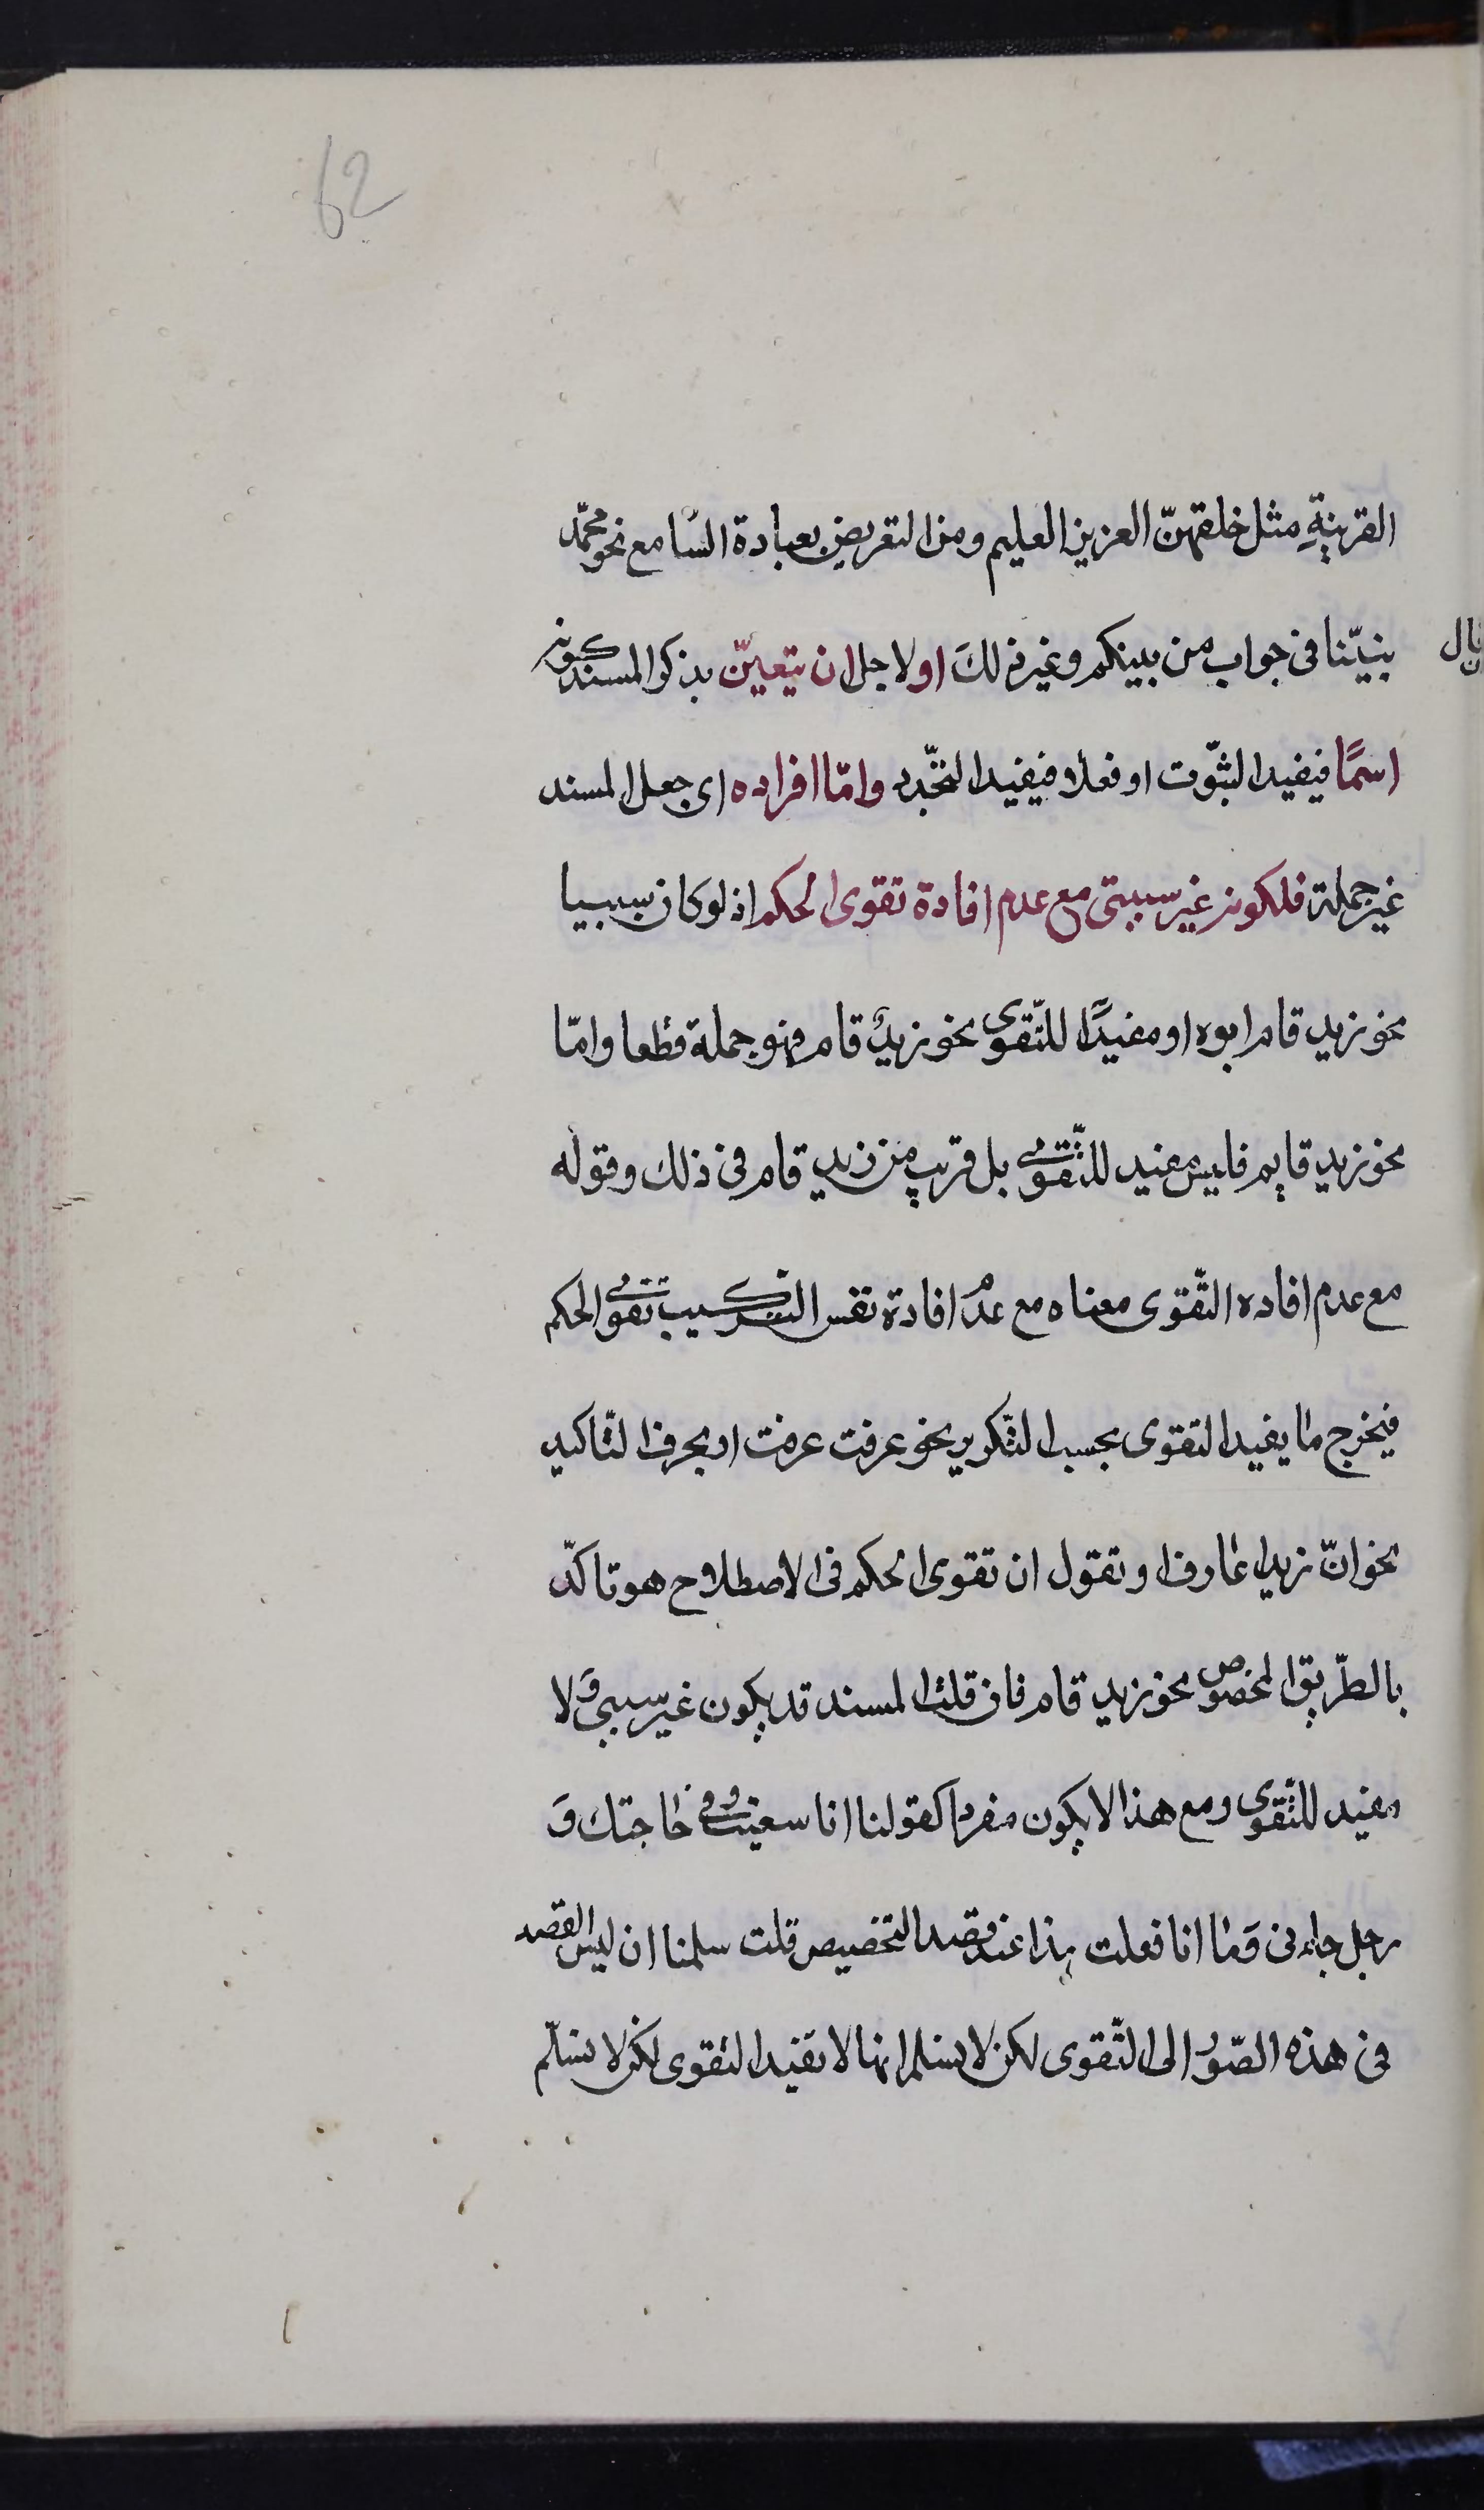 62
القرينةِ مثل خلقهنّ العزيز العليم ومن التعريض بعبادة السّامع نحو محمّد
نبيّنا فى جواب من بنيكم وغير ذلكَ او لاجل ان يتعيّن بذكر المسند كونه
اسمًا فيفيد الثبّوت او فعلا فيفيد التجّدد وامّا افراده اى جعل المسند
غير جملة فلكونه غير سببىّ مع عدم افادة تقوى الحكم اذ لو كان سببيا
نحو زيد قام ابوه او مفيدًا للتّقوى نحو زيدٌ قام فهو جملة قطعا وامّا
نحو زيد قايم فليس بمفيد للتّقوى بل قريب من زيد قام فى ذلك وقوله
مع عدم افاده التّقوى معناه مع عدم افادة نفس التركيب تقوى الحكم
فيخرج ما يفيد التقوى بحسب التّكرير نحو عرفت عرفت او بحرف التّاكيد
نحو انّ زيدا عارف او تقول ان تقوى الحكم فى الاصطلاح هو تاكدّ
بالطّريق المخصوص نحو زيد قام فان قلت المسند قد يكون غير سببى وَلا
مفيد للتّقوى ومع هذا لا يكون مفردا كقولنا انا سعيت فى حاجتك وَ
رجل جاءنى وَما انا فعلت هذا عند قصد التخصيص قلت سلمنا ان ليس القصد
فى هذه الصّور الى التّقوى لكن لا نسلم انها لا تفيد التقوى لكن لا نسلّم